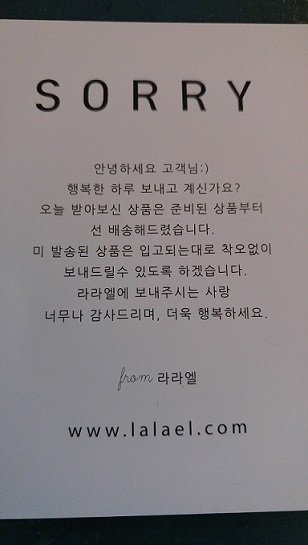 SORRY
안녕하세요 고객님:)
행복한 하루 보내고 계신가요?
오늘 받아보신 상품은 준비된 상품부터
선 배송해드렸습니다.
미 발송된 상품은 입고되는대로 착오없이
보내드릴수 있도록 하겠습니다.
라라엘에 보내주시는 사랑
너무나 감사드리며, 더욱 행복하세요.
from 라라엘
www.lalael.com